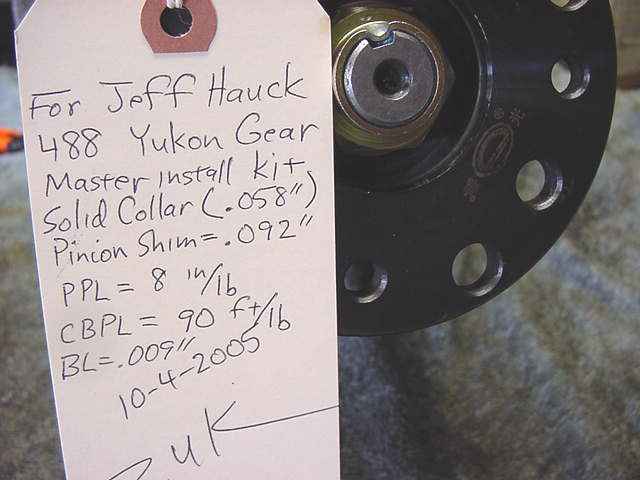 For Jeff Hauck
488 Yukon Gear
Master install kit
Solid Collar (.058")
Pinion Shim = .092"
PPL = 8 in/lb
CBPL = 90 ft/lb
BL = .009"
10-4-2005
Zuk